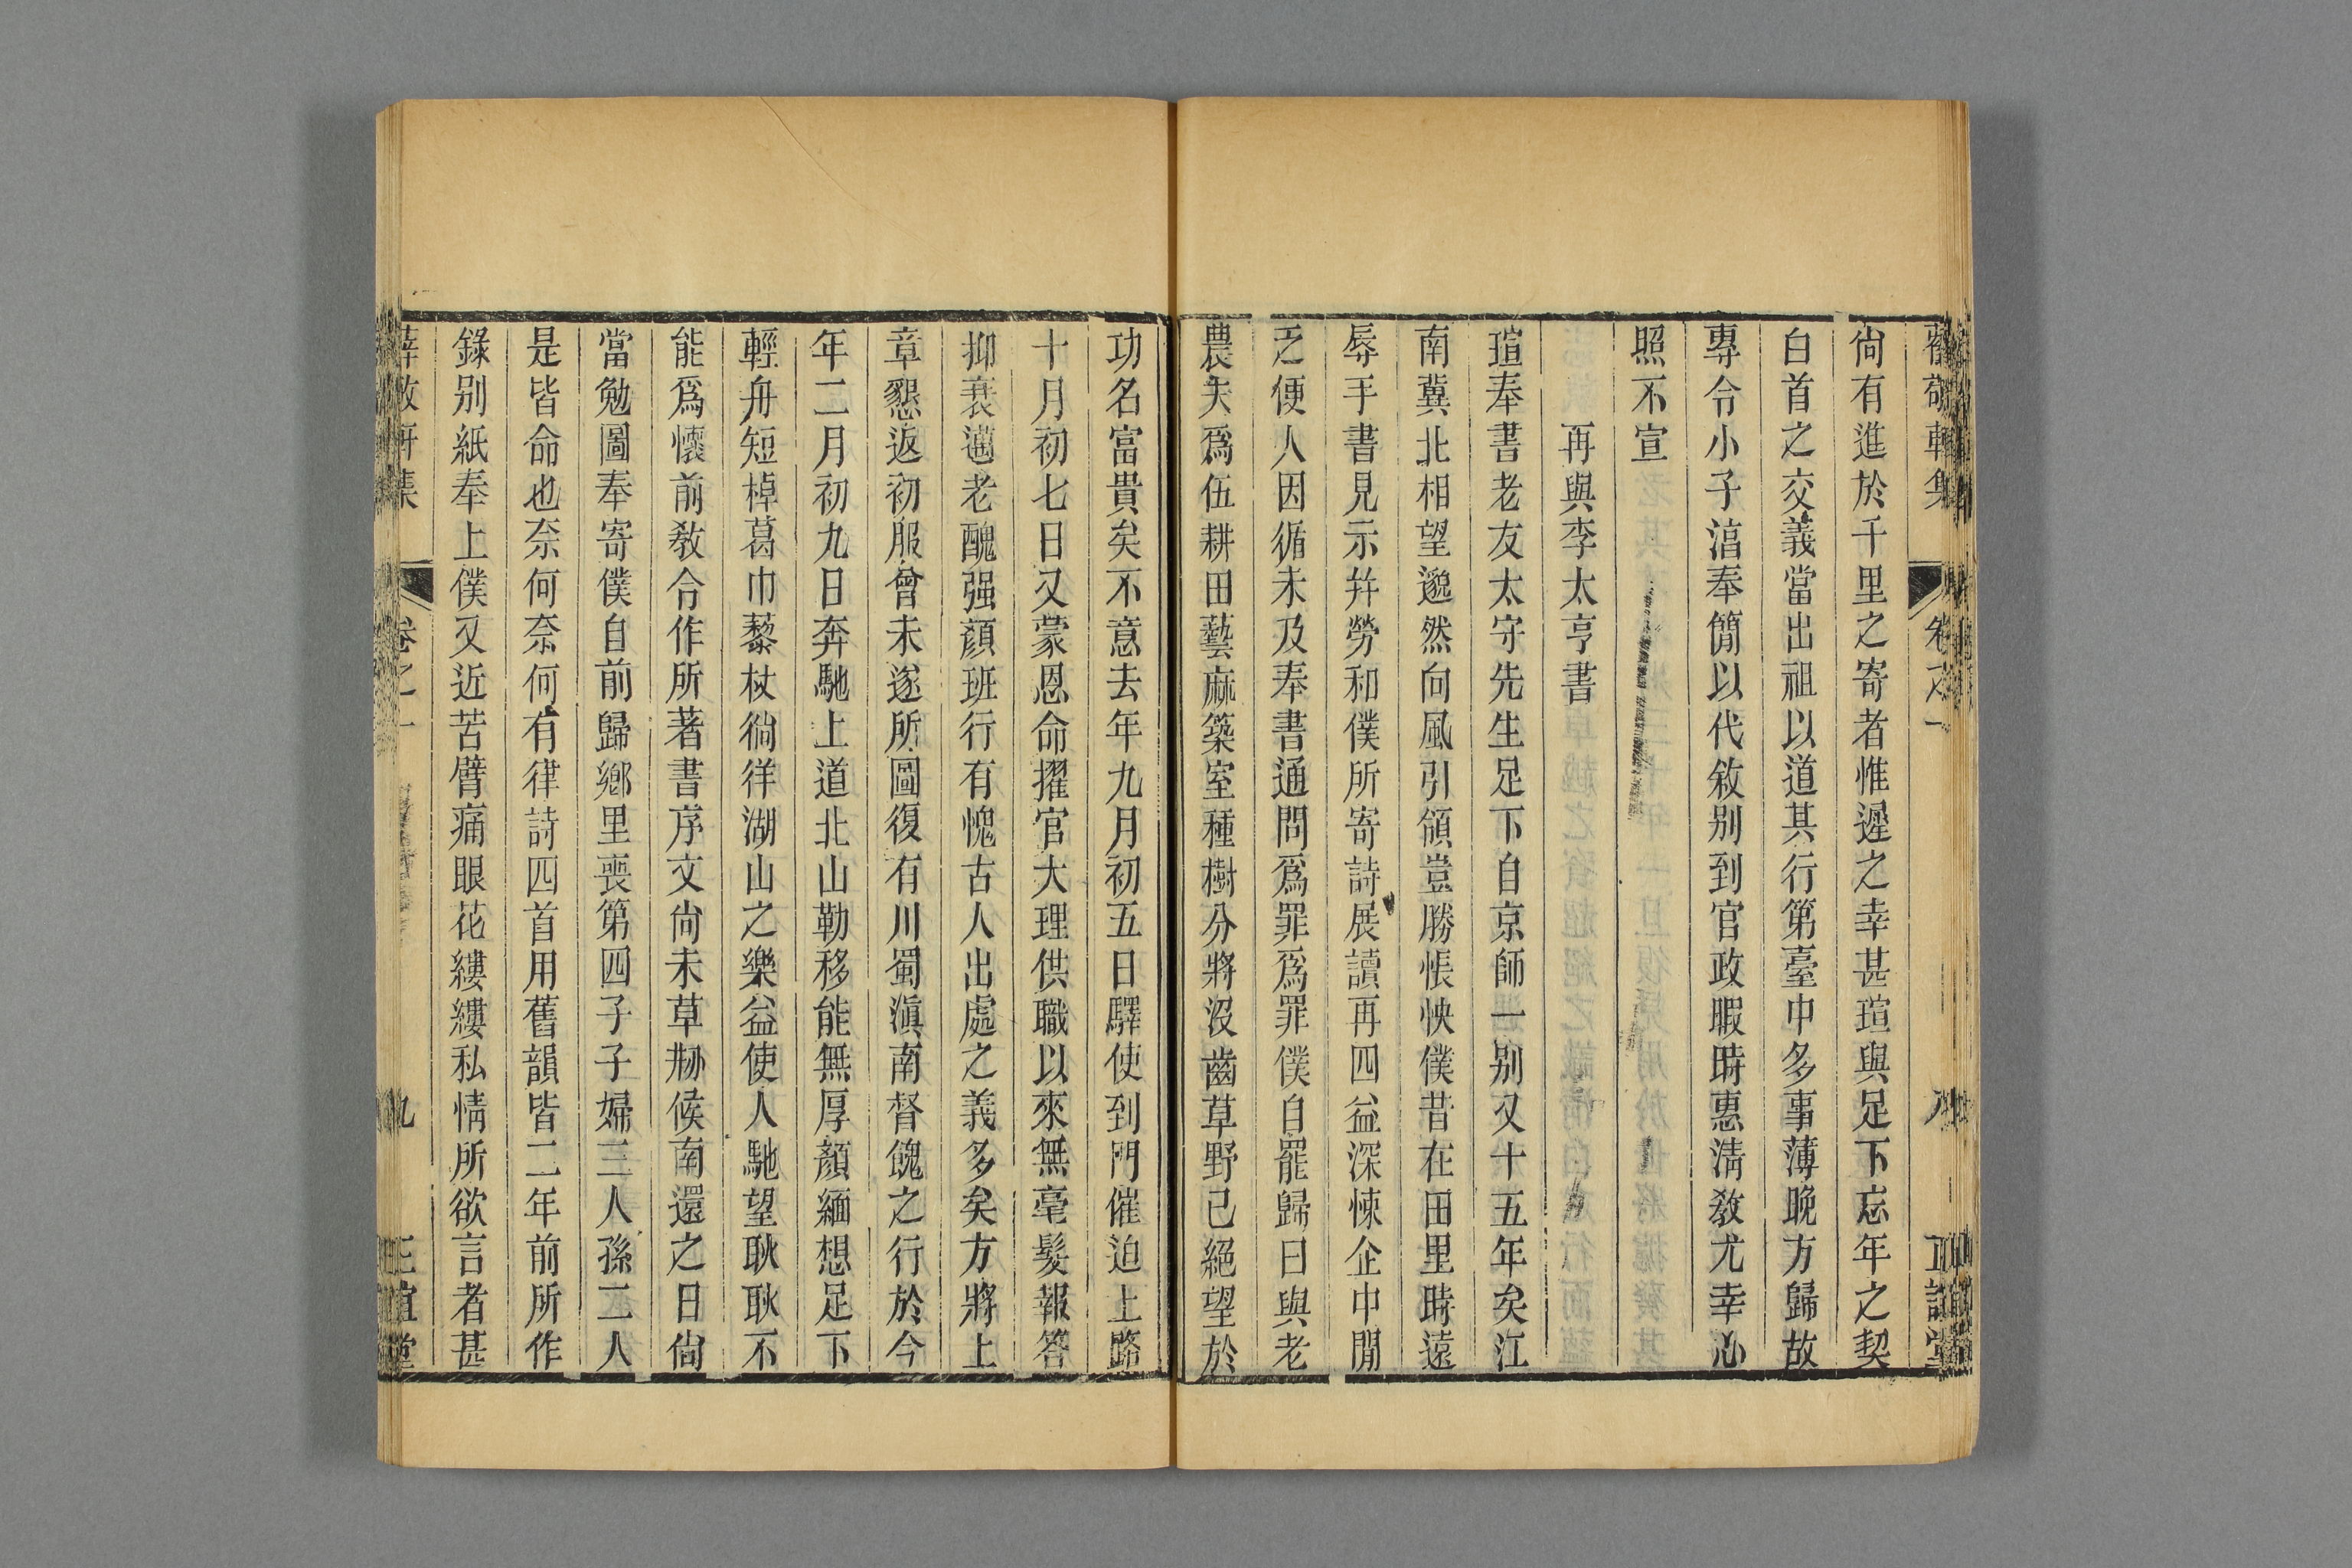 薛敬軒集 卷之一 八 正誼堂
尙有進於千里之寄者惟遲之幸甚瑄與足下忘年之契
白首之交義當出祖以道其行第臺中多事薄晚方歸故
專令小子湻奉簡以代敘别到官政暇時惠淸敎尤幸心
照不宣
再與李太亨書
瑄奉書老友太守先生足下自京師一别又十五年矣江
南冀北相望邈然向風引領豈勝悵怏僕昔在田里時遠
辱手書見示幷勞和僕所寄詩展讀再四益深悚企中閒
乏便人因循未及奉書通問爲罪爲罪僕自罷歸日與老
農夫爲伍耕田藝麻築室種樹分將沒齒草野已絕望於
功名富貴矣不意去年九月初五日驛使到門催迫上路
十月初七日又蒙恩命擢官大理供職以來無毫髮報答
抑衰邁老醜强顏班行有愧古人出處之義多矣方將上
章懇返初服曾未遂所圖復有川蜀滇南督餽之行於今
年二月初九日奔馳上道北山勒移能無厚顏緬想足下
輕舟短棹葛巾藜杖徜徉湖山之樂益使人馳望耿耿不
能爲懷前敎令作所著書序文尙未草刱候南還之日尙
當勉圖奉寄僕自前歸鄉里喪第四子子婦三人孫二人
是皆命也奈何奈何有律詩四首用舊韻皆二年前所作
錄别紙奉上僕又近苦臂痛眼花縷縷私情所欲言者甚
薛敬軒集 卷之一 九 正誼堂